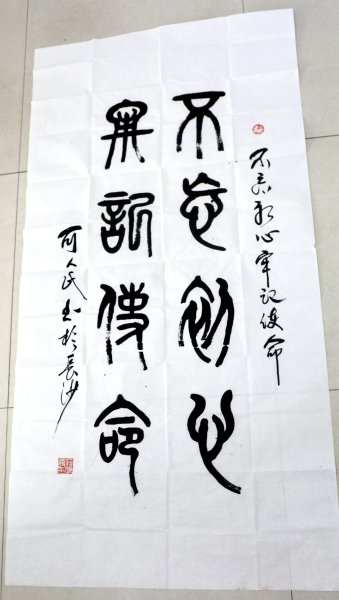 不忘初心牢记使命
不忘初心
牢記使命
可人民书於長沙